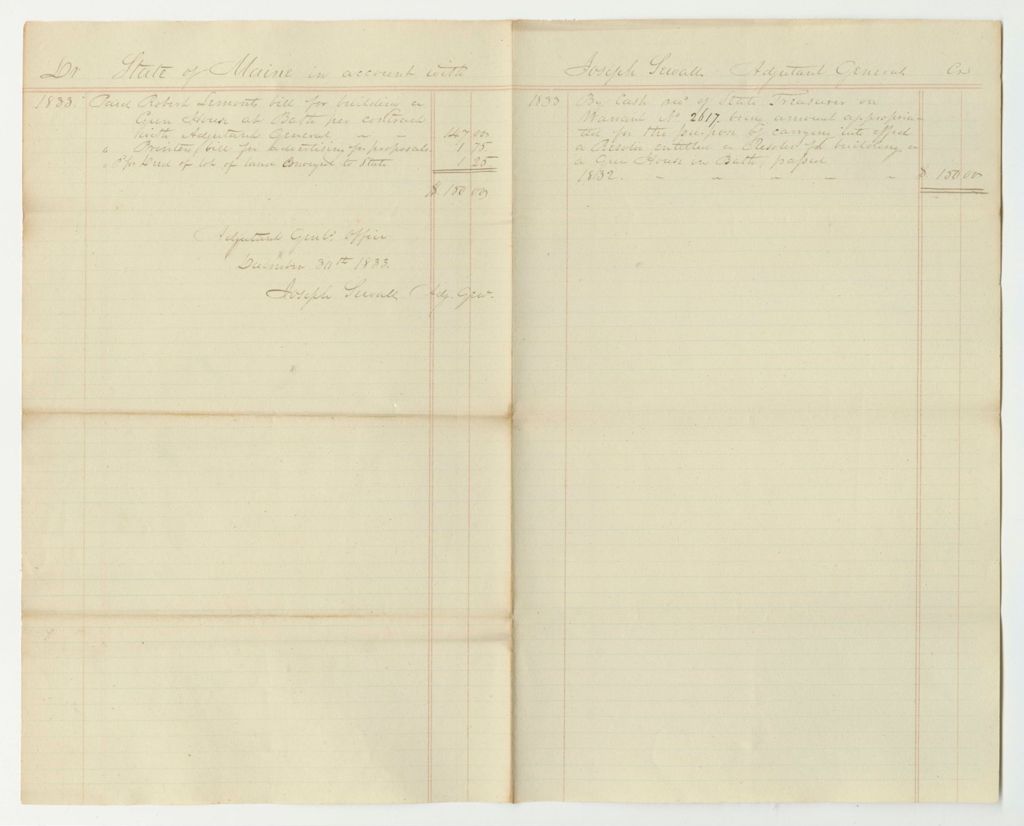 Dr State of Maine in account with
1833. Paid Robert Lemont bill for building a
Gun House at Bath per contract
with Adjutant General " " 147 00
" Printers bill for advertising for proposals. 1 75
" for Deed of lot of land conveyed to State 1 25
$ 150 00
Adjutant Genls. Office
December 30th 1833.
Joseph Sewall Adj. Gen.
Joseph Sewall Adjutant General Cr
1833 By Cash of State Treasurer on
Warrant No. 2617. being amount appropria-
ted for the purpose of carrying into effect
a Resolve entitled a Resolve for building
a Gun House in Bath, passed
1832. " " " " " $ 150 00